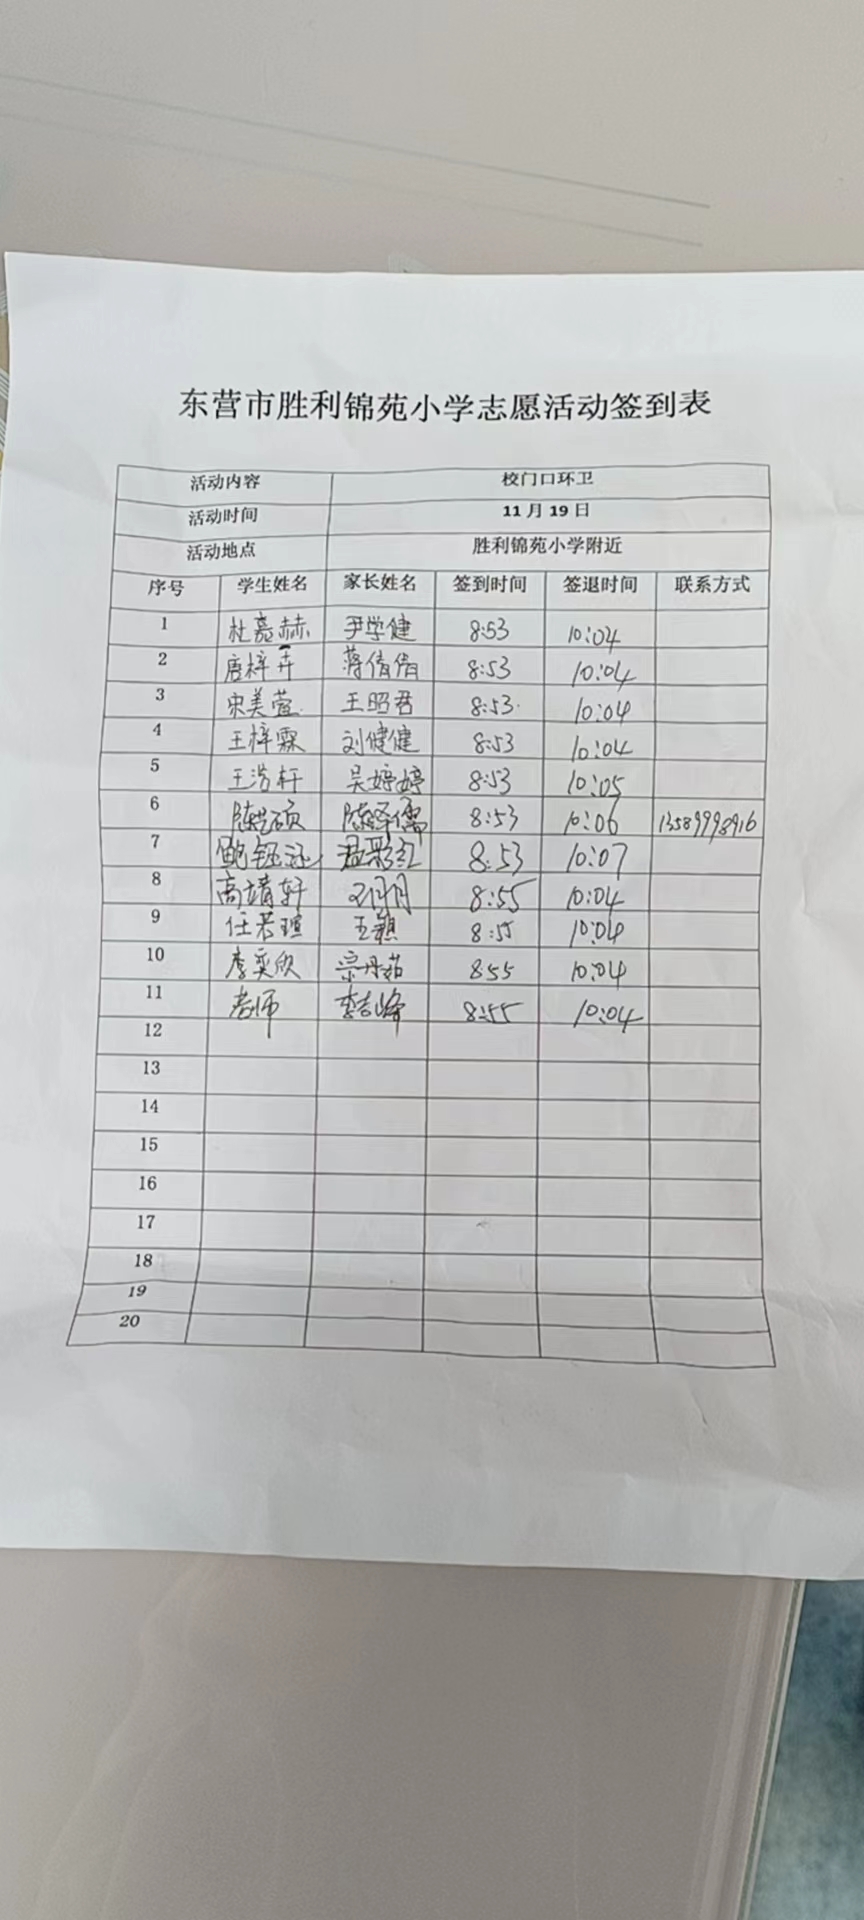 东营市胜利锦苑小学志愿活动签到表
活动内容 校门口环卫
活动时间 11月19日
活动地点 胜利锦苑小学附近
序号 学生姓名 家长姓名 签到时间 签退时间 联系方式
1 尹学健 8:53 10:04
2 唐梓卉 蒋倩倩 8:53 10:04
3 宋美萱 王昭君 8:53 10:04
4 王梓霖 刘健健 8:53 10:04
5 王浩轩 吴婷婷 8:53 10:05
6 8:53 10:06 13589998916
7 8:53 10:07
8 高靖轩 8:55 10:04
9 任若瑄 王颖 8:55 10:04
10 李奕欣 宗丹茹 855 10:04
11 老师 李志峰 8:55 10:04
12
13
14
15
16
17
18
19
20